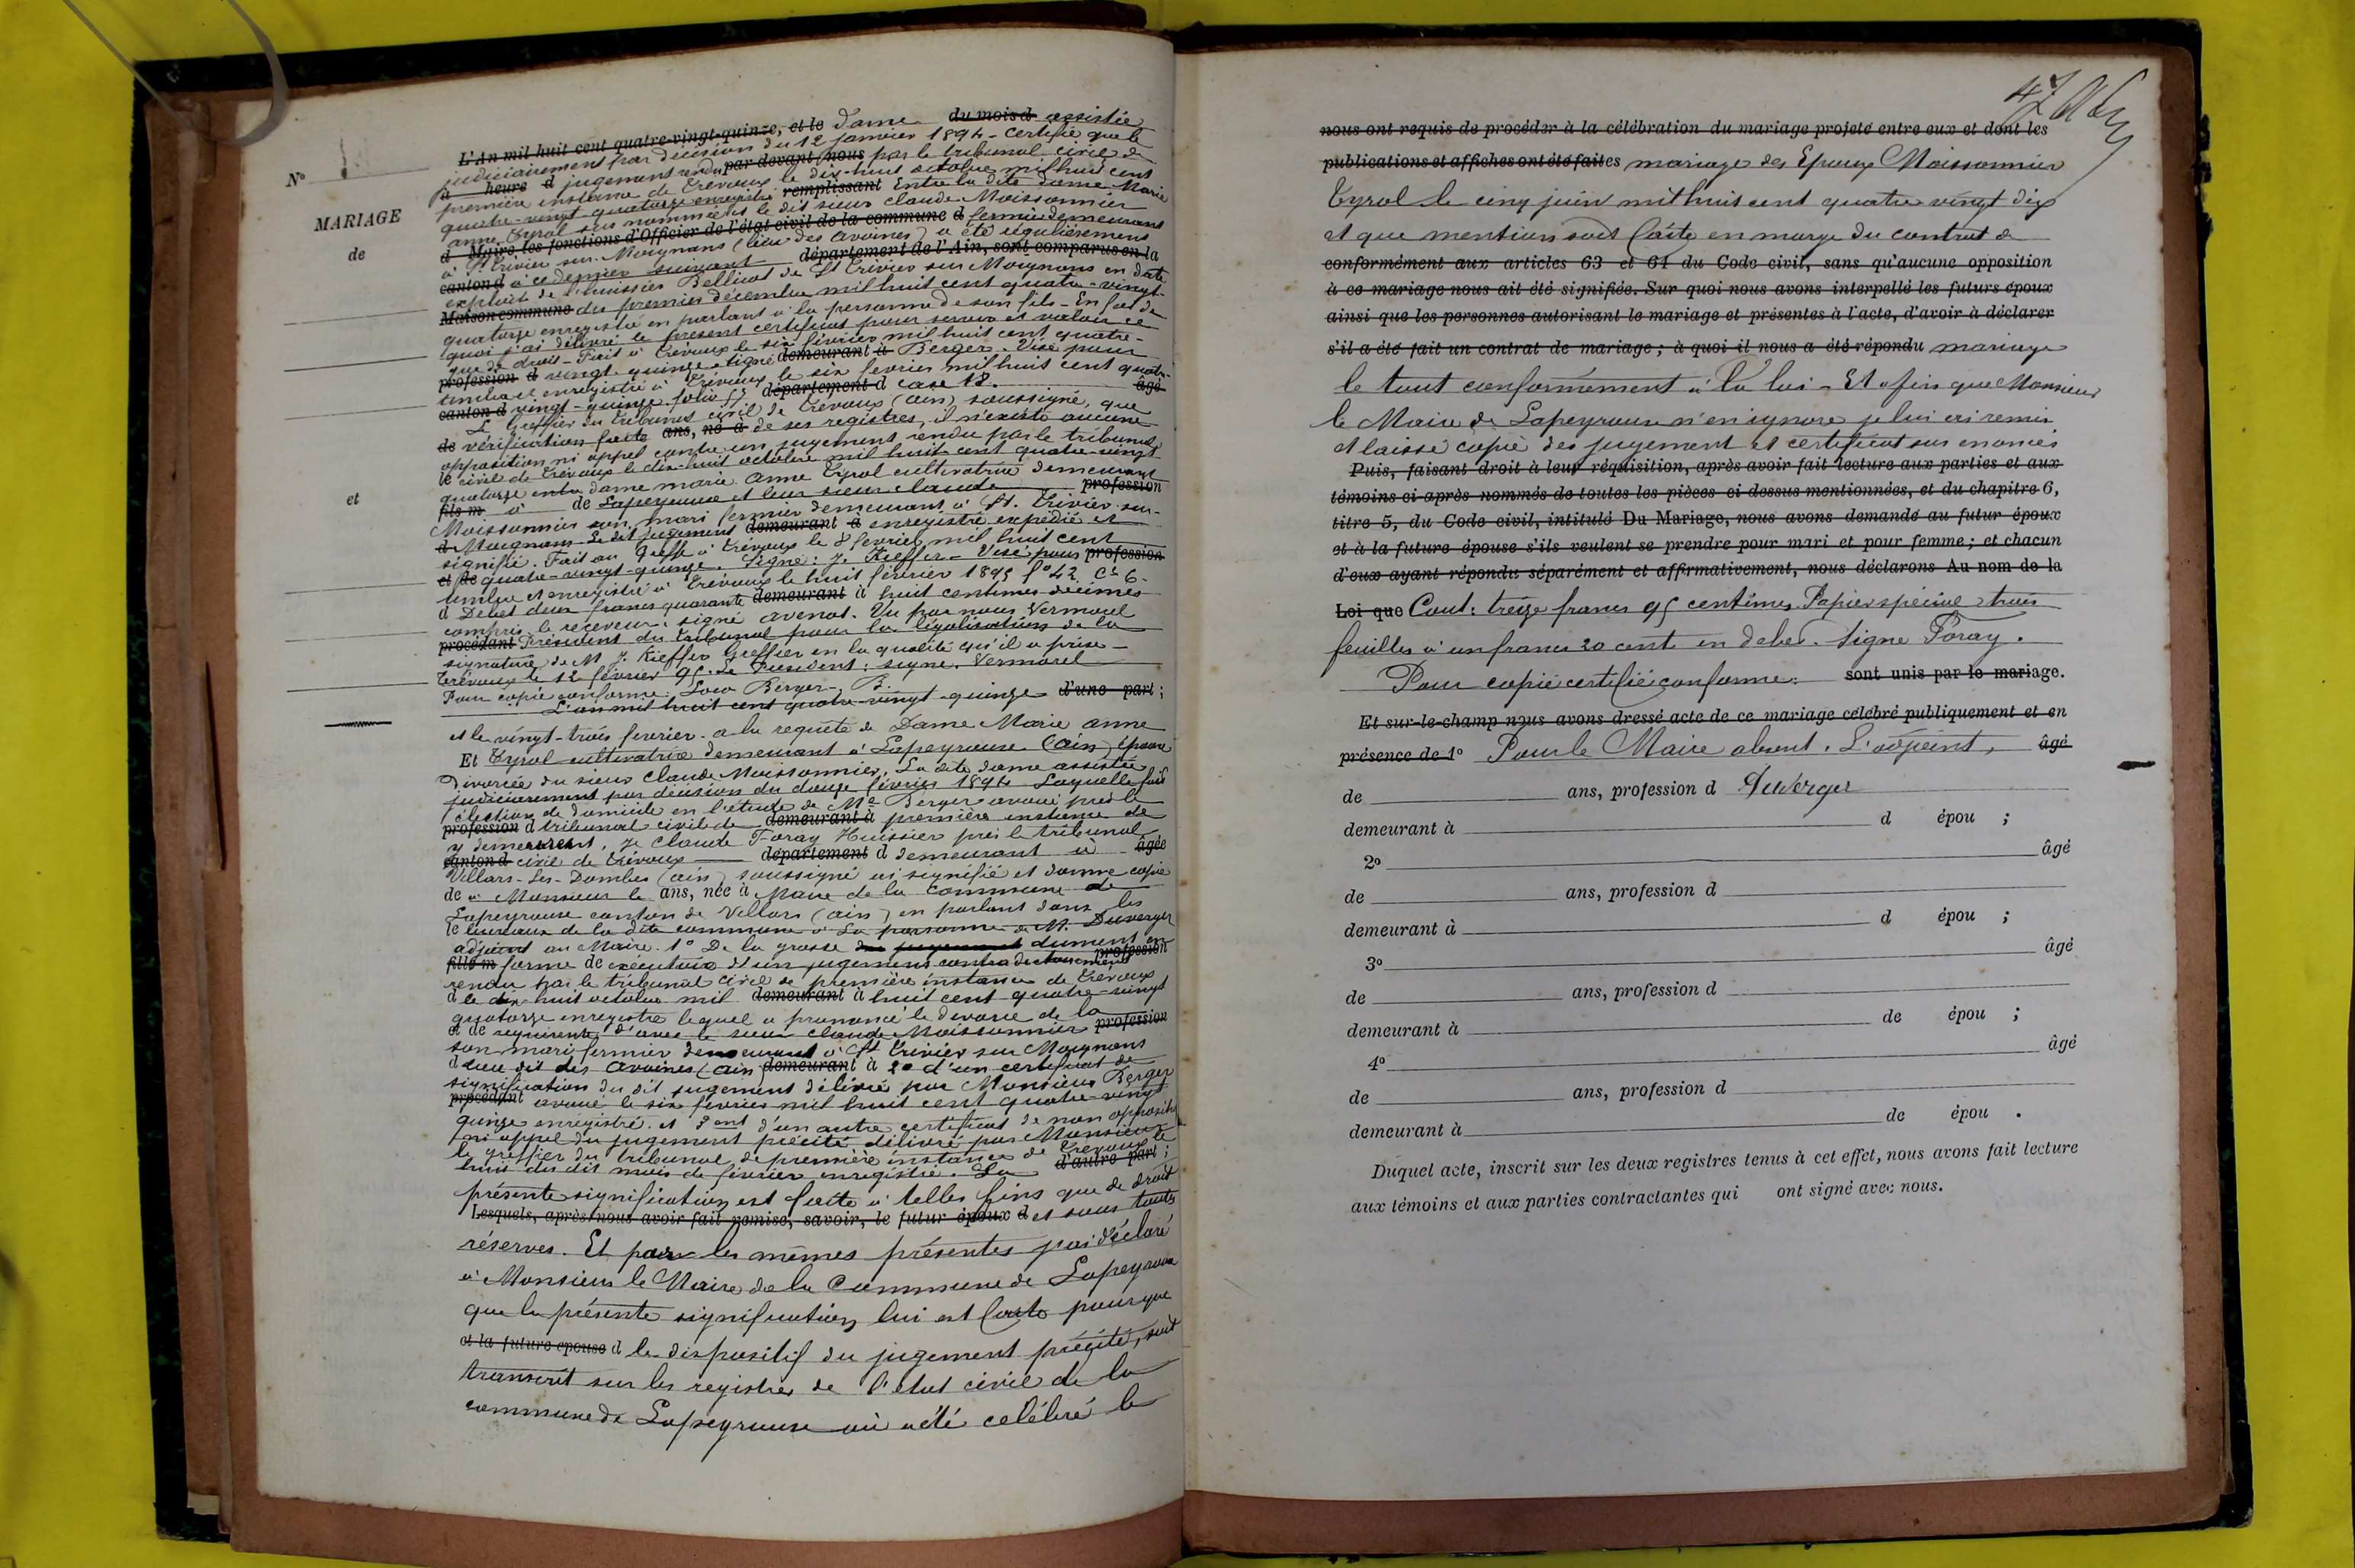 N°
MARIAGE
de
et
L'An mil huit cent quatre-vingt-quinze, et le Dame du mois d assistée
judiciairement par décision du 12 janvier 1894 - certifie que le
à heure d jugement rendu par devant nous par le tribunal civil de
première instance de Trévoux le dix-huit octobre mil huit cent
quatre-vingt-quatorze enregistré remplissant Entre la dite dame Marie
anne Tyrol sus nommée et le dit sieur Claude Moissonnier
d Maire les fonctions d'Officier de l'état civil de la commune d fermier demeurant
à St Trivier sur Moignans (lieu des Avoines) a été régulièrement
canton d à ce dernier suivant département de l'Ain, sont comparus en la
exploit de l'huissier Bellicat de St Trivier sur Moignans en date
Maison commune du premier décembre mil huit cent quatre-vingt-
quatorze enregistré en parlant à la personne de son fils - En foi de
quoi j'ai délivré le présent certificat pour servir et valoir ce
que de droit - Fait à Trévoux le six février mil huit cent quatre-
profession d vingt-quinze - signé demeurant à Berger. Visé pour
timbre et enregistré à Trévoux le six fevrier mil huit cent quatre-
canton d vingt-quinze folio 57 département d case 18. âgé
Le Greffier du Tribunal civil de Trévoux (ain) soussigné, que
de vérification faite ans, né à de ses registres, il n'existe aucune
opposition ni appel contre un jugement rendu par le tribunal
le civil de Trévoux le dix-huit octobre mil huit cent quatre-vingt
quatorze entre dame marie anne Tyrol cultivatrice demeurant
fils m à de Lapeyrouse et leur sieur claude profession
Moissonnier son mari fermier demeurant à St. Trivier sur-
d Moignans - Le dit jugement demeurant à enregistré expédié et
signifié. Fait au Greffe à Trévoux le 8 fevrier mil huit cent
et de quatre-vingt-quinze. Signé: J. Kieffer - Visé pour profession
timbre et enregistré à Trévoux le huit février 1895 f° 42 Cse 6-
d Débet deux francs quarante demeurant à huit centimes décimes
compris le receveur: signé avenat. Vu par nous Vermorel
procédant Président du tribunal pour la légalisation de la
signature de M J. Kieffer Greffier en la qualité qu'il a prise -
Trévoux le 12 février 95. Le Président: signé. Vermorel
Pour copie conforme: Loco Berger-, B.
L'an mil huit cent quatre-vingt-quinze d'une part;
et le vingt-trois fevrier. a la requête de Dame Marie anne
Et Tyrol cultivatrice demeurant à Lapeyrouse (ain) épouse
divorcée du sieur claude Moissonnier, La dite dame assistée
judiciairement par décision du douze février 1894 - Laquelle fait
élection de domicile en l'étude de Me Berger avoué près le
profession d tribunal civil de demeurant à première instance de
y demeurant, je Claude Foray Huissier près le tribunal
canton d civil de Trévoux département d demeurant à âgée
Villars-Les-Dombes (ain) soussigné ai signifié et donné copie
de à Monsieur le ans, née à Maire de la Commune de
Lapeyrouse canton de Villars (ain) en parlant dans les
le bureaux de la dite commune à la personne de M. Duverger
adjoint au Maire. 1° De la grosse du jugement dument en
fille m forme de exécutoire d'un jugement contradictoirement profession
rendu par le tribunal civil de première instance de Trévoux
d le dix-huit octobre mil demeurant à huit cent quatre-vingt
quatorze enregistré lequel a prononcé le divorce de la
et de requérante d'avec le sieur claude Moissonnier profession
son mari fermier demeurant à St Trivier sur Moignans
d lieu dit des Avoines (ain) demeurant à 2° d'un certificat de
signification du dit jugement délivré par Monsieur Berger
procédant avoué le six fevrier mil huit cent quatre-vingt
quinze enregistré. et 3ent d'un autre certificat de non opposition
ni appel du jugement précité délivré par Monsieur
le greffier du tribunal de première instance de Trévoux le
huit du dit mois de février enregistré. La d'autre part;
présente signification est faite à telles fins que de droit
Lesquels, après nous avoir fait remise, savoir, le futur époux d et sous toutes
réserves. Et par les mêmes présentes j'ai déclaré
à Monsieur le Maire de la Commune de Lapeyrouse
que la présente signification lui est faite pour que
et la future epouse d le dispositif du jugement précité, soit
transcrit sur les registres de l'etat civil de la
commune de Lapeyrouse où a été célébré le
47
nous ont requis de procéder à la célébration du mariage projeté entre eux et dont les
publications et affiches ont été faites mariage des Epoux Moissonnier
Tyrol le cinq juin mil huit cent quatre vingt dix
et que mention soit faite en marge du contrat de
conformément aux articles 63 et 64 du Code civil, sans qu'aucune opposition
à ce mariage nous ait été signifiée. Sur quoi nous avons interpellé les futurs époux
ainsi que les personnes autorisant le mariage et présentes à l'acte, d'avoir à déclarer
s'il a été fait un contrat de mariage; à quoi il nous a été répondu mariage
le tout conformément à la loi - Et afin que Monsieur
le Maire de Lapeyrouse n'en ignore je lui ai remis
et laissé copie des jugement et certificat sus enoncés
Puis, faisant droit à leur réquisition, après avoir fait lecture aux parties et aux
témoins ci-après nommés de toutes les pièces ci-dessus mentionnées, et du chapitre 6,
titre 5, du Code civil, intitulé Du Mariage, nous avons demandé au futur époux
et à la future épouse s'ils veulent se prendre pour mari et pour femme; et chacun
d'eux ayant répondu séparément et affirmativement, nous déclarons Au nom de la
Loi que Cout: treize francs 95 centimes Papier spécial trois
feuilles à un franc 20 cent en debet. Signé Foray.
Pour copie certifié conforme. sont unis par le mariage.
Et sur-le-champ nous avons dressé acte de ce mariage célébré publiquement et en
présence de 1° Pour le Maire absent. L'adjoint, âgé
de ans, profession d Duverger
demeurant à d épou ;
2° âgé
de ans, profession d
demeurant à d épou ;
3° âgé
de ans, profession d
demeurant à de épou ;
4° âgé
de ans, profession d
demeurant à de épou .
Duquel acte, inscrit sur les deux registres tenus à cet effet, nous avons fait lecture
aux témoins et aux parties contractantes qui ont signé avec nous.